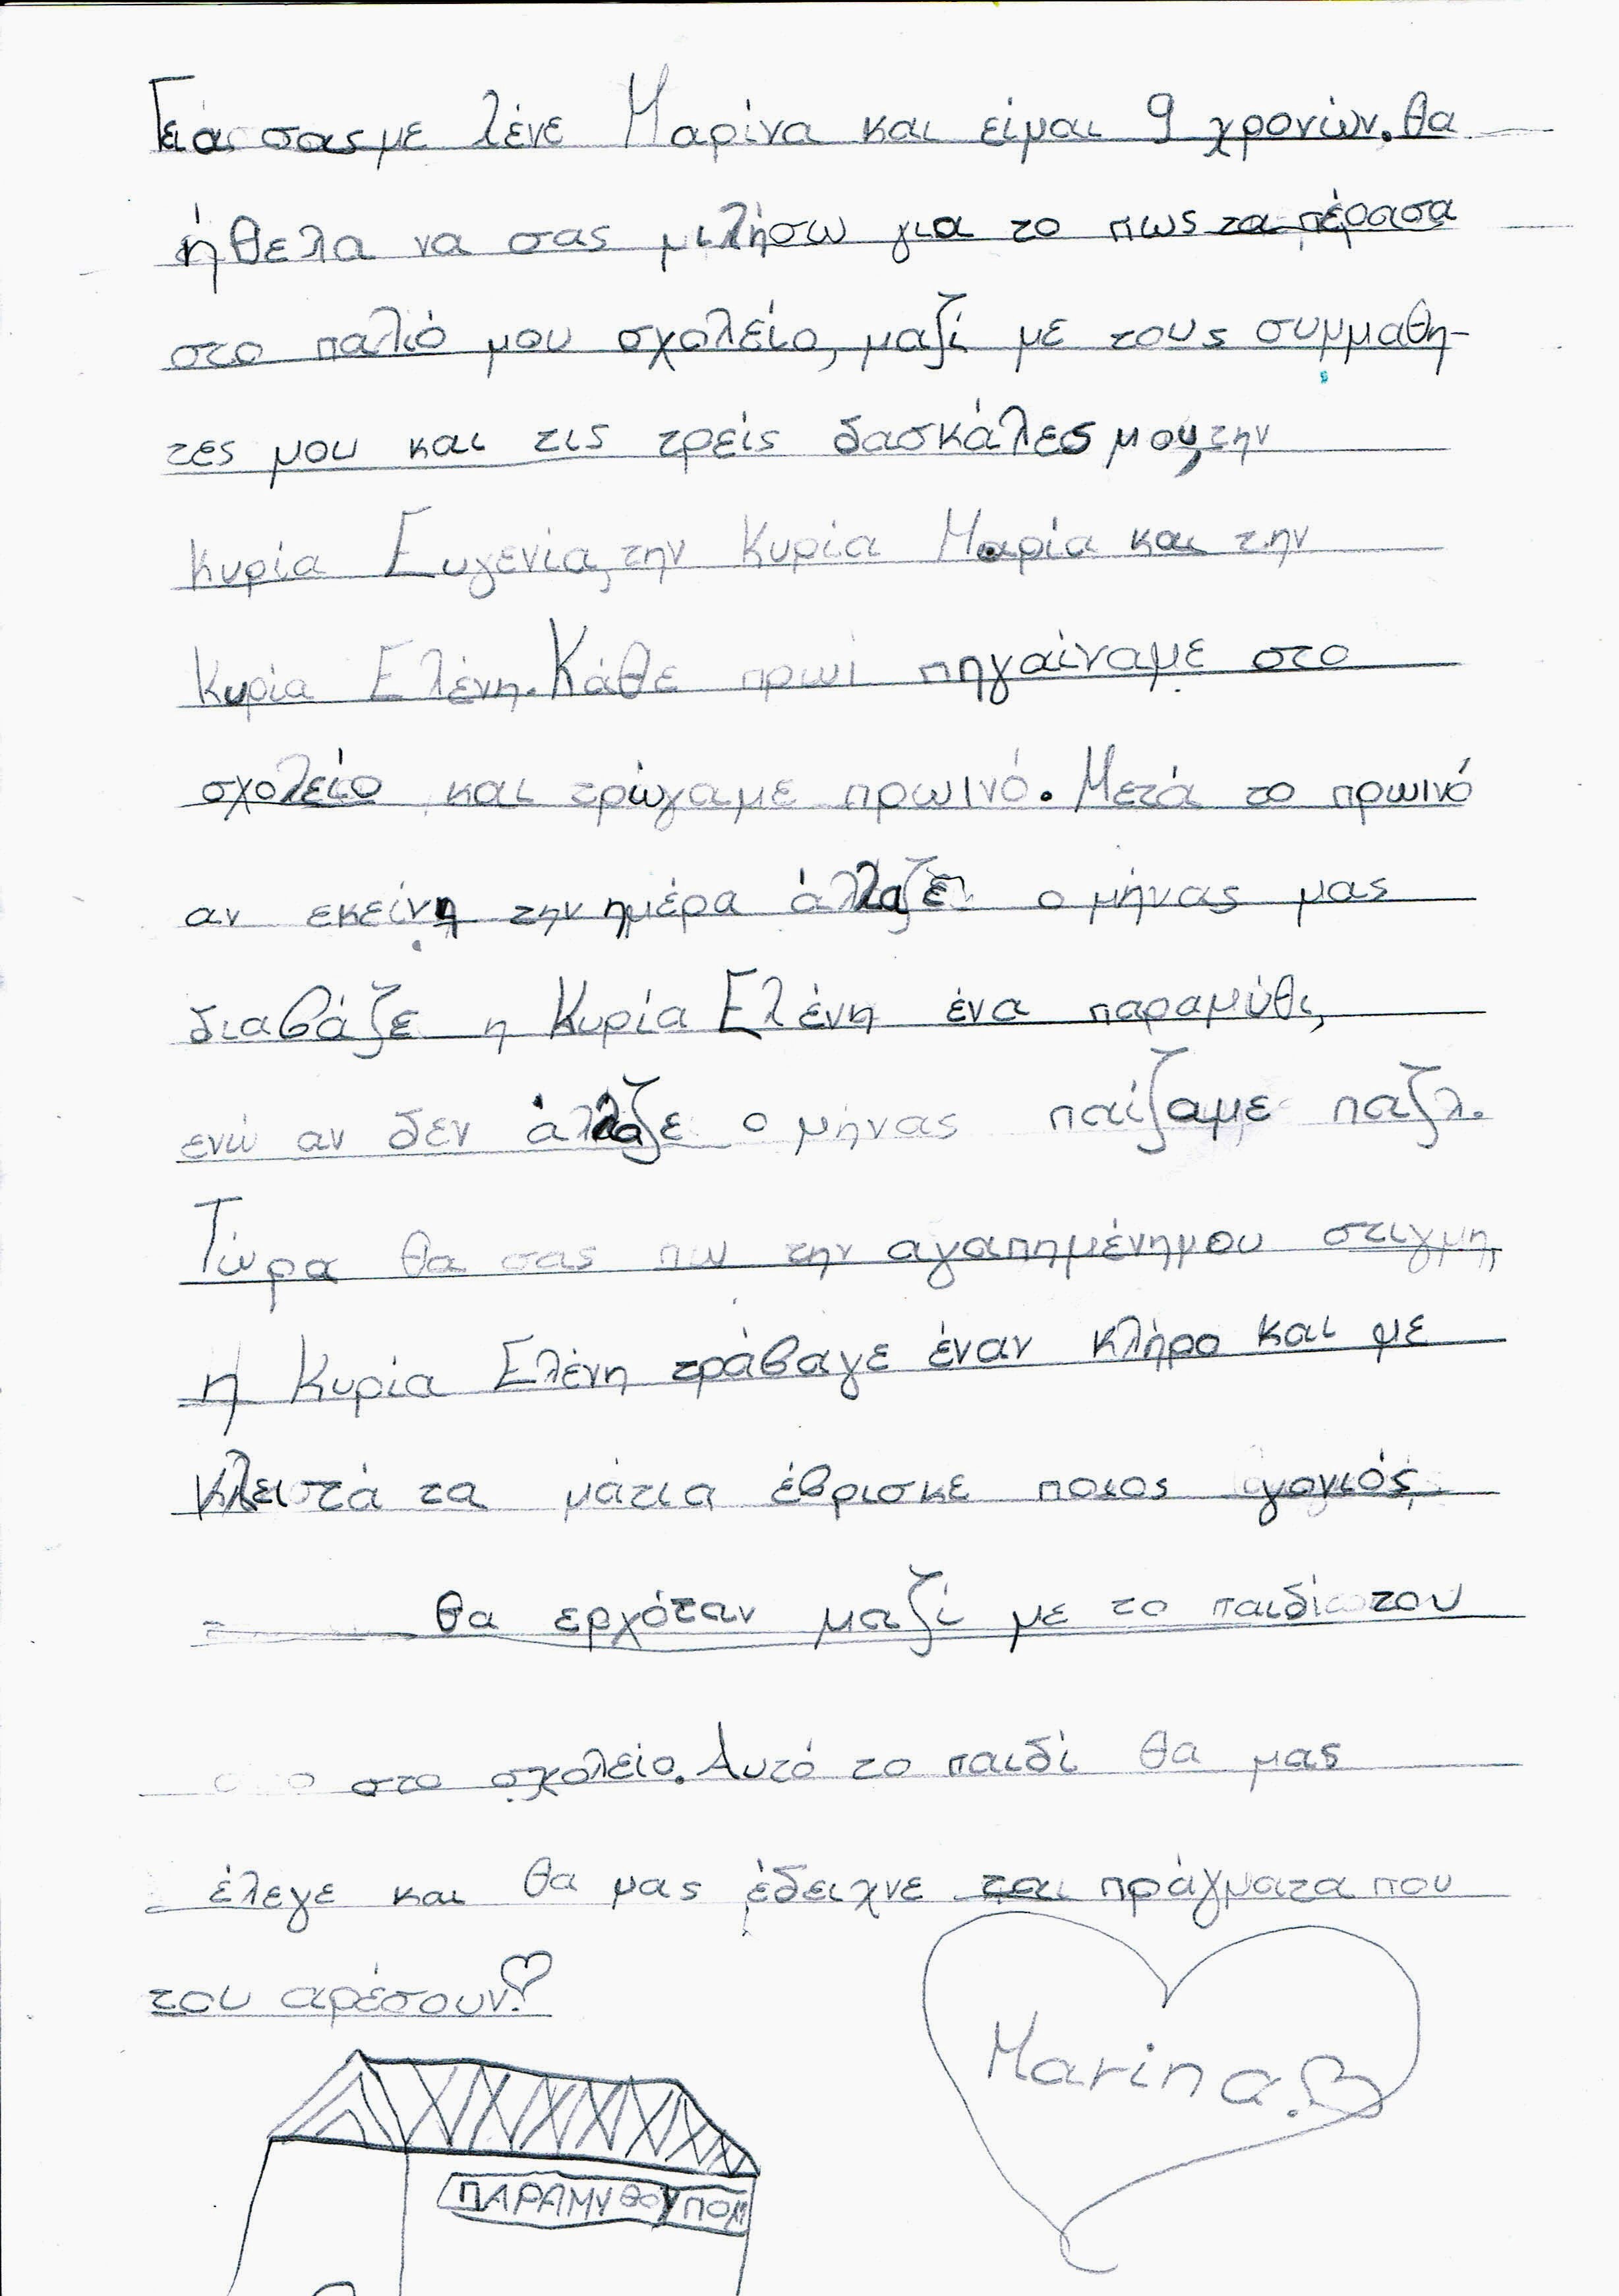 Γειά σας με λένε Μαρίνα και είμαι 9 χρονών. θα
ήθελα να σας μιλήσω για το πως τα πέρασα
στο παλιό μου σχολείο, μαζί με τους συμμαθη-
τες μου και τις τρείς δασκάλες μου, την
Κυρία Ευγενία, την Κυρία Μαρία και την
Κυρία Ελένη. Κάθε πρωί πηγαίναμε στο
σχολείο και τρώγαμε πρωινό. Μετά το πρωινό
αν εκείνη την ημέρα άλλαζε ο μήνας μας
διαβάζε η Κυρία Ελένη ένα παραμύθι,
ενώ αν δεν άλλαζε ο μήνας παίζαμε παζλ.
Τώρα θα σας πω την αγαπημένη μου στιγμη,
η Κυρία Ελένη τράβαγε έναν κλήρο και με
κλειστά τα μάτια έβρισκε ποιος γονιός,
θα ερχόταν μαζί με το παιδί του
στο σχολείο. Αυτό το παιδί θα μας
έλεγε και θα μας έδειχνε τα πράγματα που
του αρέσουν.
Marina.
ΠΑΡΑΜΥΘΟΥΠΟΛΗ